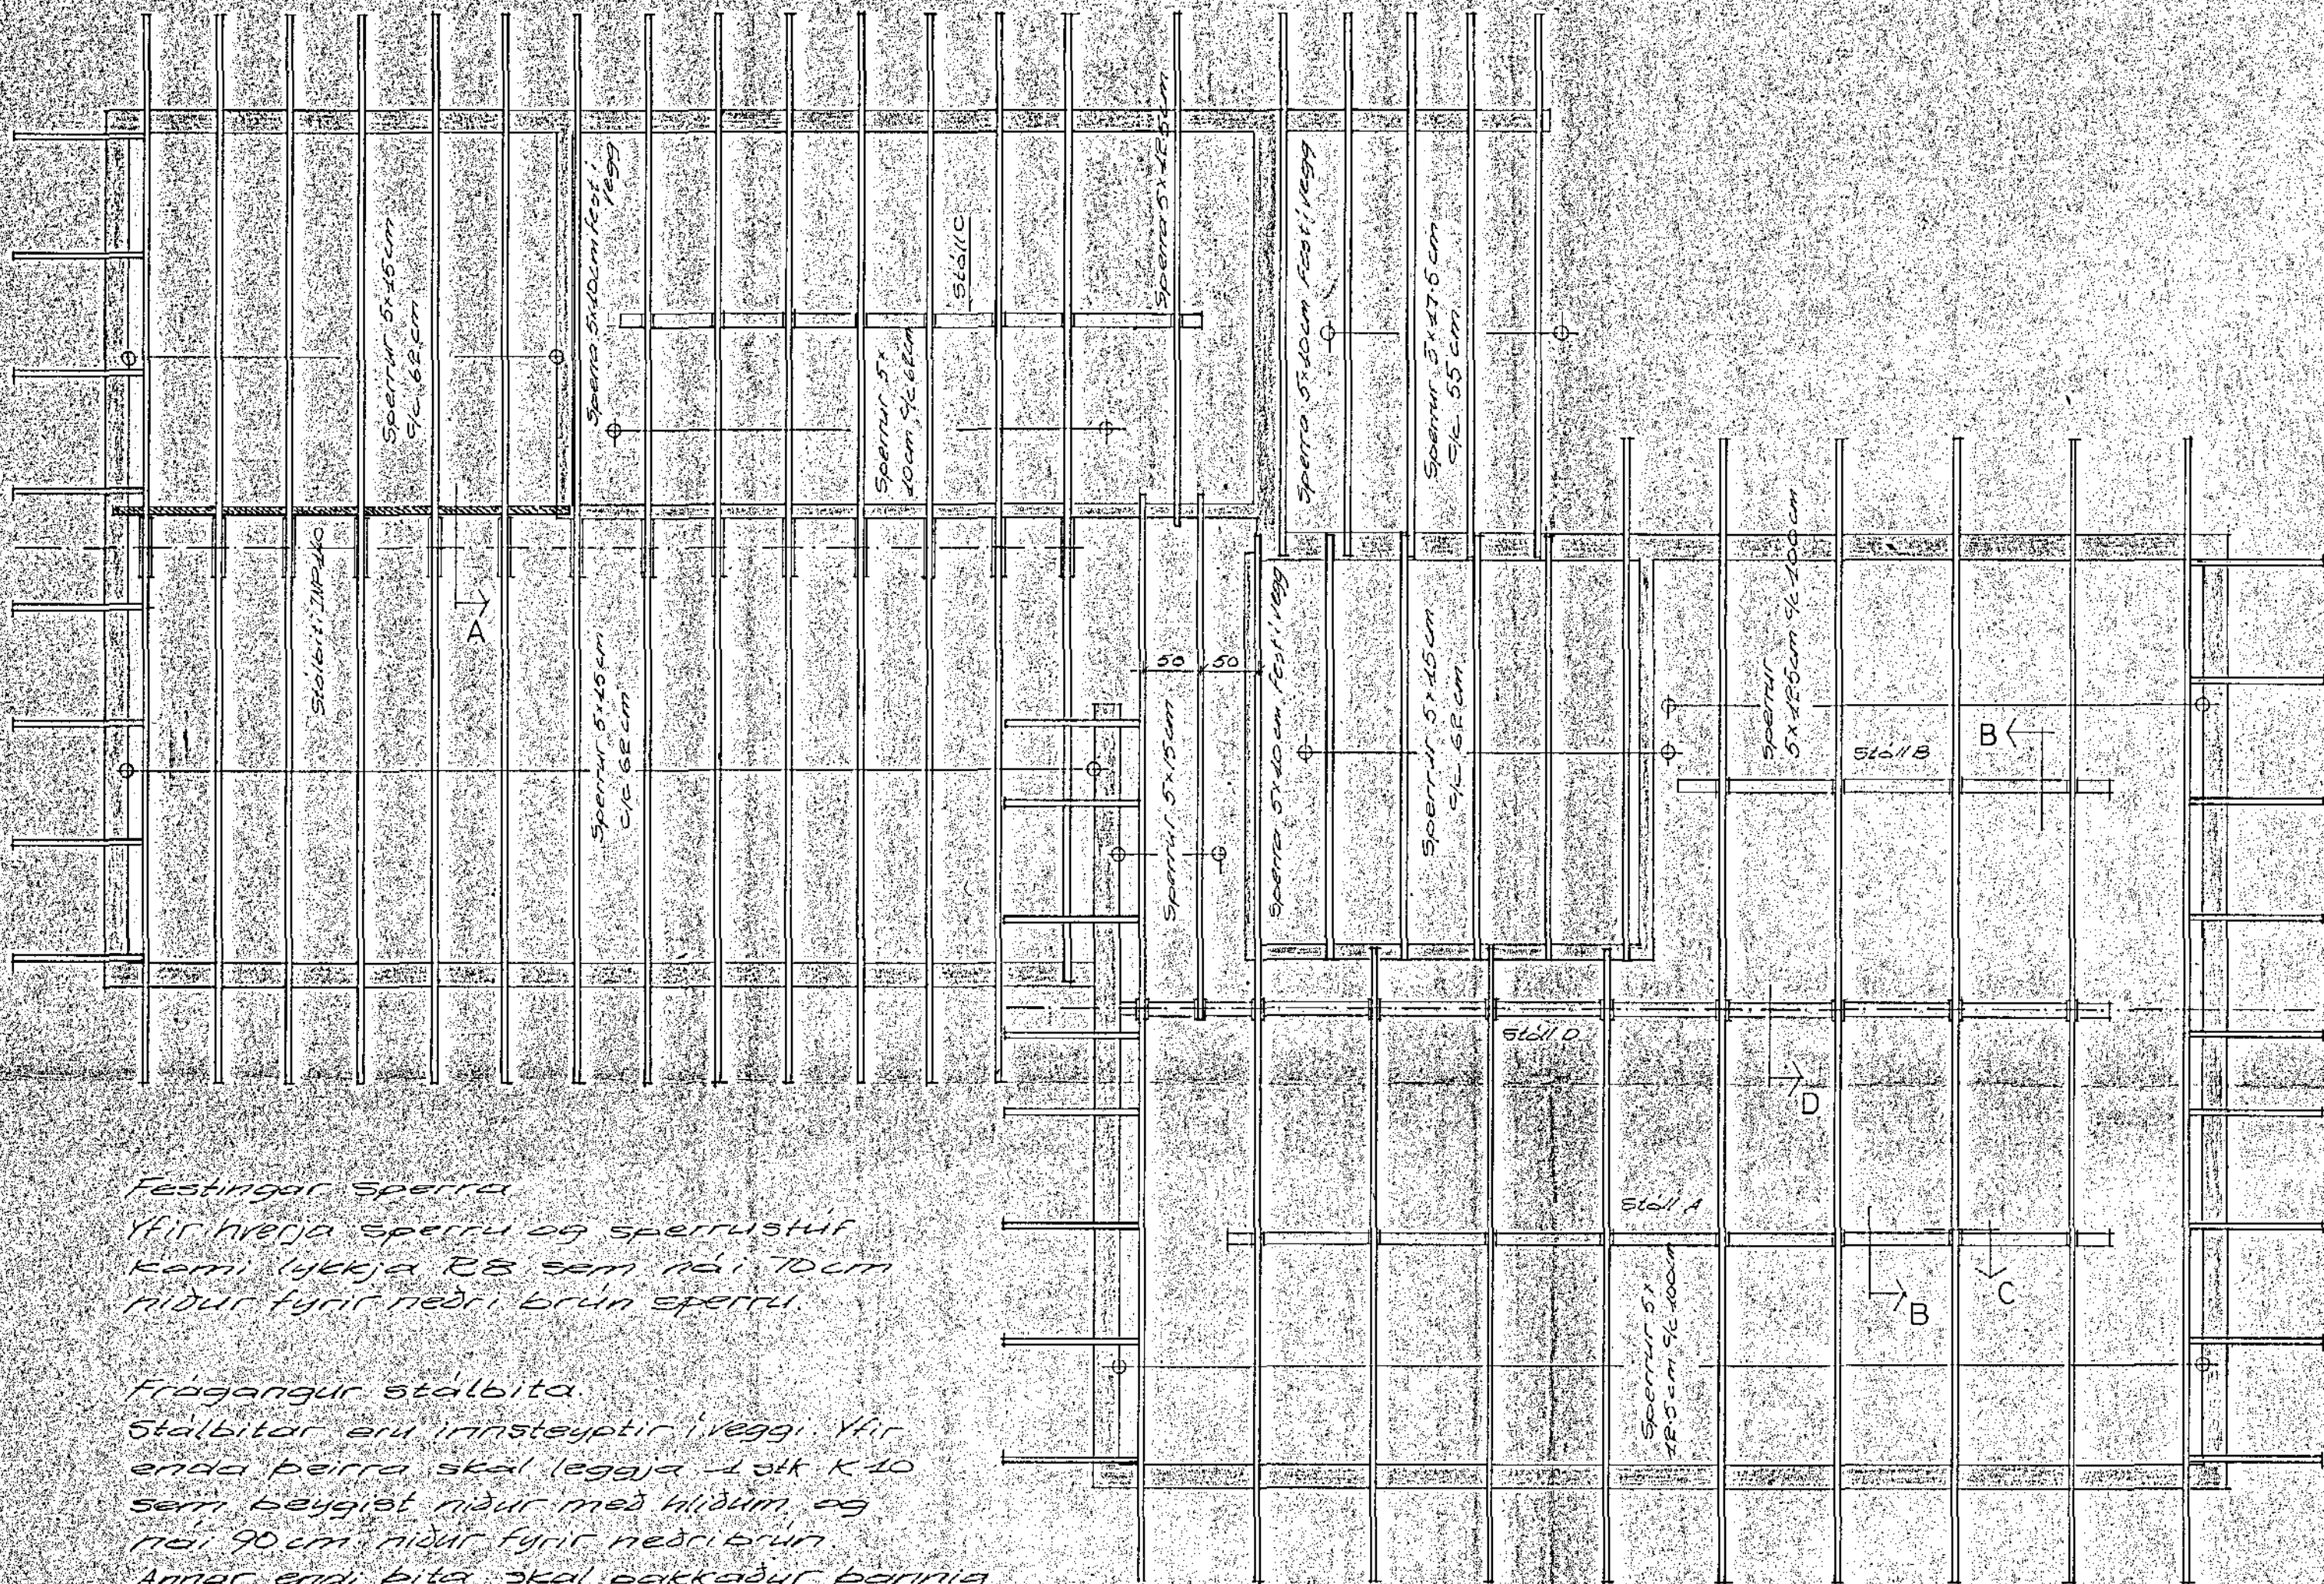 Sperrur 5x15cm
c/c 62 cm
Sperra 5x10cm fest í
vegg
Sperrur 5x
10cm, c/c 62cm
Stóll C
Sperra 5x12.5cm
Sperra 5x10cm fest í vegg
Sperrur 5x17.5cm
c/c 55 cm.
Stálbiti INP
A
Sperrur 5x15cm
c/c 62cm
50 50
Sperrur 5x15cm
Sperra 5x10cm fest í vegg
Sperrur 5x15cm
c/c 62 cm
Sperrur
5x12.5cm c/c 100cm
Stóll B
B
Stóll D
D
Stóll A
B
C
Sperrur 5x
12.5cm c/c 100cm
Festingar sperra
Yfir hverja sperru og sperrustúf
komi lykkja R8 sem nái 70cm
niður fyrir neðri brún sperru.
Frágangur stálbita.
Stálbitar eru innsteyptir í veggi. Yfir
enda þeirra skal leggja 1 stk K10
sem beygist niður með hliðum og
nái 90 cm niður fyrir neðri brún.
Annar endi bita skal pakkaður þannig